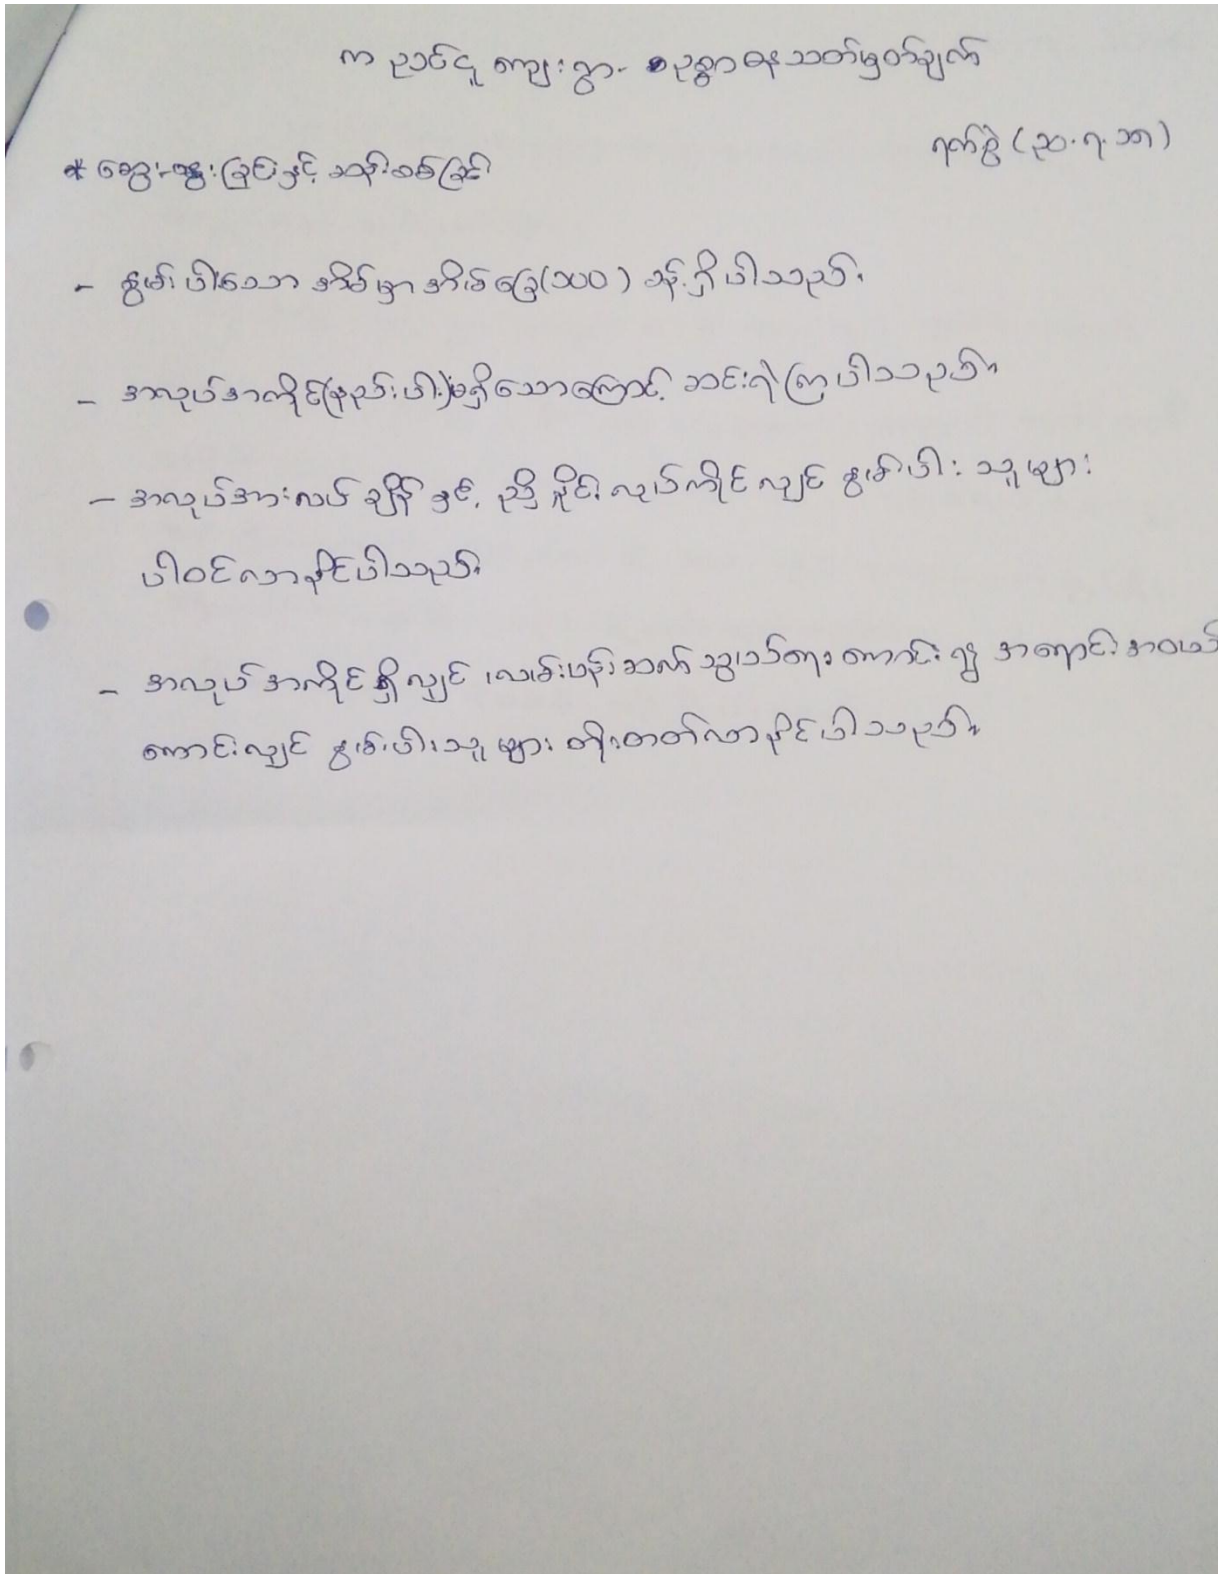 က ညင်ငူ ကျေးရွာ - ဥစ္စာဓန သတ်မှတ်ချက်
ရက်စွဲ (၃၁.၇.၁၈)
* ဆွေးနွေးခြင်းနှင့် ဆန်းစစ်ခြင်း
- နွမ်းပါးသော အိမ်မှာ အိမ်ခြေ(၁၀၀) ခန့်ရှိပါသည်။
- အလုပ်အကိုင်(နည်းပါး)မရှိသောကြောင့် ဆင်းရဲကြပါသည်။
- အလုပ်အားလပ်ချိန်နှင့် ညှိနှိုင်း လုပ်ကိုင်လျှင် နွမ်းပါးသူများ
ပါဝင်လာနိုင်ပါသည်။
- အလုပ်အကိုင်ရှိလျှင် ၊လမ်းပန်းဆက်သွယ်ရေးကောင်း၍ အရောင်းအဝယ်
ကောင်းလျှင် နွမ်းပါးသူများ တိုးတတ်လာနိုင်ပါသည်။